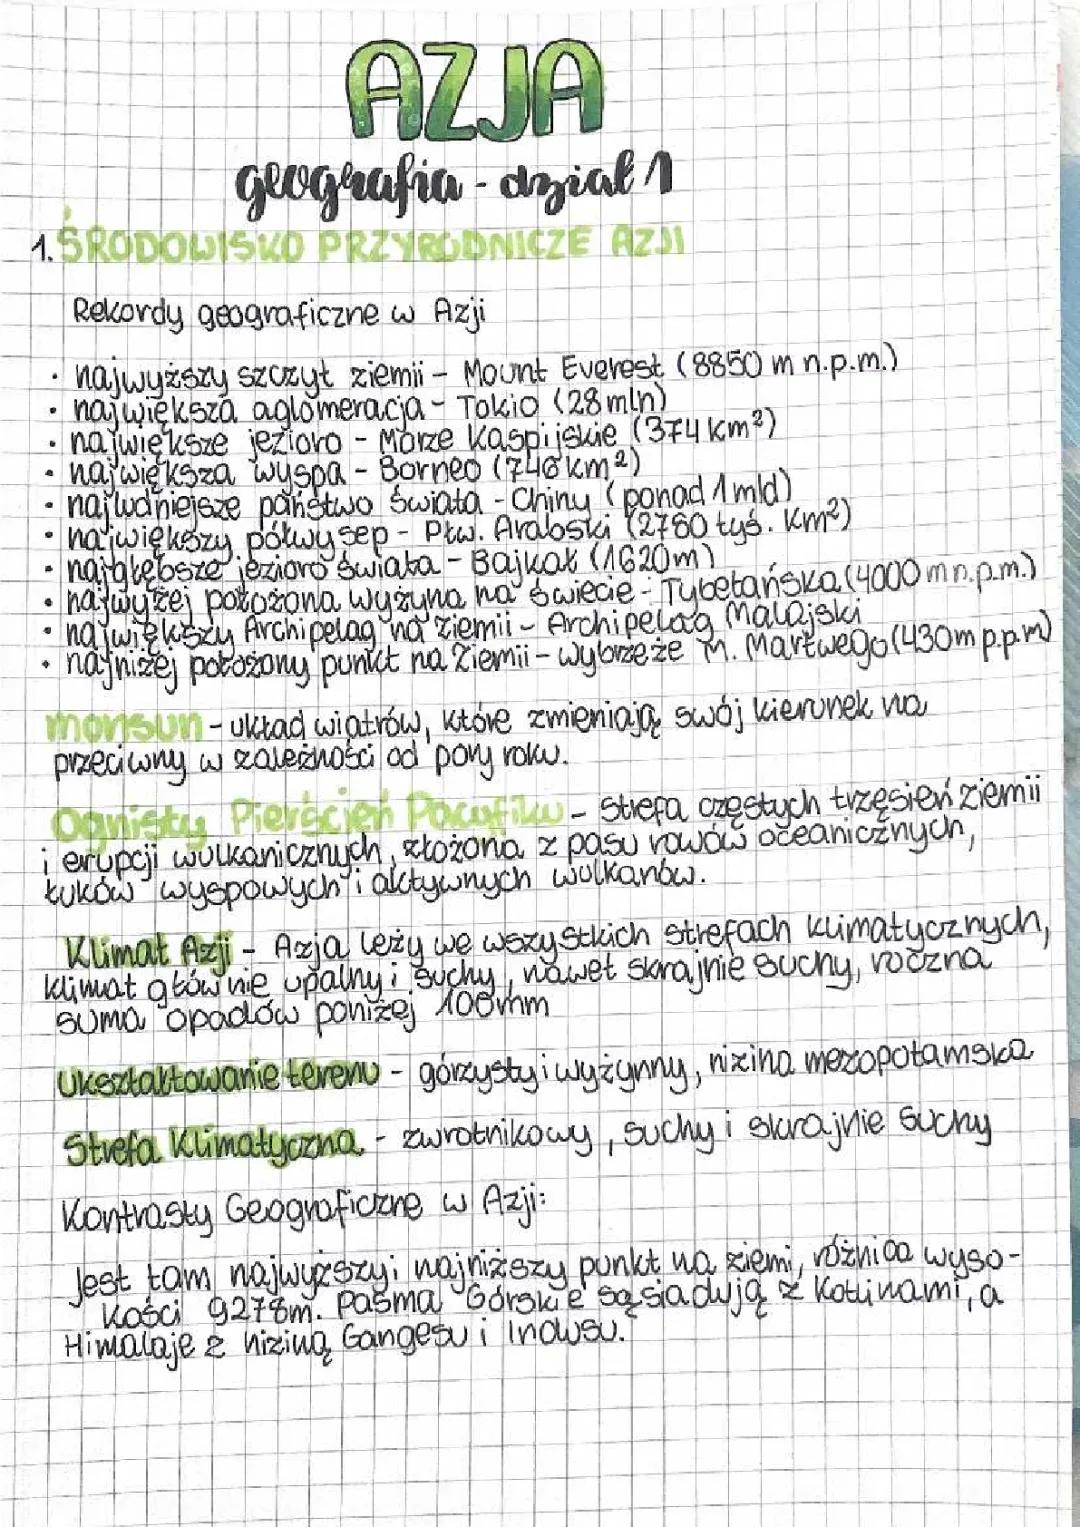 AZJA
geografia - dział 1
1. ŚRODOWISKO PRZYRODNICZE AZJI
Rekordy geograficzne w Azji
• najwyższy szczyt ziemii - Mount Everest (8850 m n.p.m.)
• największa aglomeracja - Tokio (28 mln)
• największe jezioro - Morze Kaspijskie (374 km²)
• największa wyspa - Borneo (746 km²)
• najludniejsze państwo świata - Chiny (ponad 1 mld)
• największy półwysep - Płw. Arabski (2780 tyś. km²)
• najgłębsze jezioro świata - Bajkał (1620m)
• najwyżej położona wyżyna na świecie - Tybetańska (4000 m n.p.m.)
• największy Archipelag na ziemii - Archipelag Malajski
• najniżej położony punkt na Ziemii - wybrzeże M. Martwego (430m p.p.m)
monsun - układ wiatrów, które zmieniają swój kierunek na
przeciwny w zależności od pory roku.
Ognisty Pierścień Pacyfiku - strefa częstych trzęsień ziemii
i erupcji wulkanicznych, złożona z pasu rowów oceanicznych,
łuków wyspowych i aktywnych wulkanów.
Klimat Azji - Azja leży we wszystkich strefach klimatycznych,
klimat głównie upalny i suchy, nawet skrajnie suchy, roczna
suma opadów poniżej 100mm
Ukształtowanie terenu - górzysty i wyżynny, nizina mezopotamska
Strefa Klimatyczna - zwrotnikowy, suchy i skrajnie suchy
Kontrasty Geograficzne w Azji:
Jest tam najwyższy i najniższy punkt na ziemi, różnica wyso-
kości 9278m. Pasma Górskie sąsiadują z Kotlinami, a
Himalaje z niziną Gangesu i Indusu.